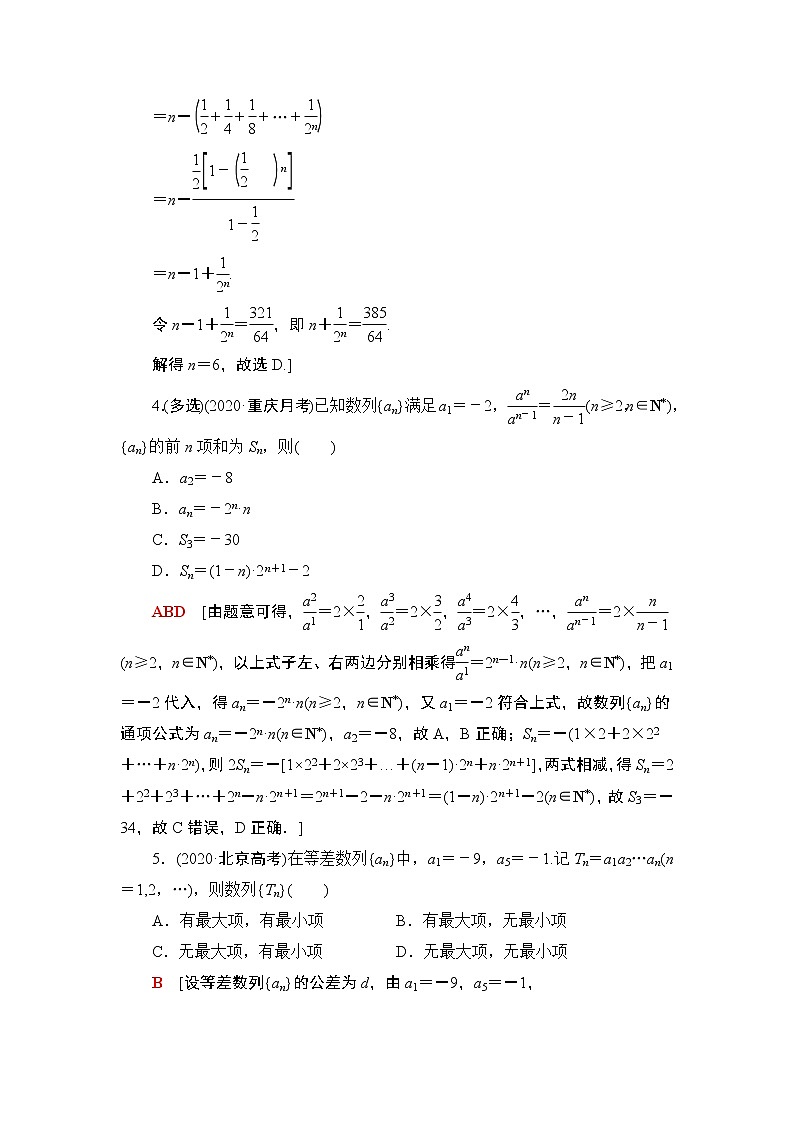 =n-(1/2+1/4+1/8+…+1/2ⁿ)
=n-(1/2[1-(1/2)ⁿ])/(1-1/2)
=n-1+1/2ⁿ.
令 n-1+1/2ⁿ=321/64，即 n+1/2ⁿ=385/64.
解得 n=6，故选 D.]
4.(多选)(2020·重庆月考)已知数列{aₙ}满足 a₁=-2，aⁿ/aⁿ⁻¹=2n/(n-1)(n≥2，n∈N*)，
{aₙ}的前 n 项和为 Sₙ，则(　　)
A．a₂=-8
B．aₙ=-2ⁿ·n
C．S₃=-30
D．Sₙ=(1-n)·2ⁿ⁺¹-2
ABD　[由题意可得，a²/a¹=2×2/1，a³/a²=2×3/2，a⁴/a³=2×4/3，…，aⁿ/aⁿ⁻¹=2×n/(n-1)
(n≥2，n∈N*)，以上式子左、右两边分别相乘得aⁿ/a¹=2ⁿ⁻¹·n(n≥2，n∈N*)，把 a₁
=-2 代入，得 aₙ=-2ⁿ·n(n≥2，n∈N*)，又 a₁=-2 符合上式，故数列{aₙ}的
通项公式为 aₙ=-2ⁿ·n(n∈N*)，a₂=-8，故 A，B 正确；Sₙ=-(1×2+2×2²
+…+n·2ⁿ)，则 2Sₙ=-[1×2²+2×2³+…+(n-1)·2ⁿ+n·2ⁿ⁺¹]，两式相减，得 Sₙ=2
+2²+2³+…+2ⁿ-n·2ⁿ⁺¹=2ⁿ⁺¹-2-n·2ⁿ⁺¹=(1-n)·2ⁿ⁺¹-2(n∈N*)，故 S₃=-
34，故 C 错误，D 正确．]
5．(2020·北京高考)在等差数列{aₙ}中，a₁=-9，a₅=-1.记 Tₙ=a₁a₂…aₙ(n
=1,2，…)，则数列{Tₙ}(　　)
A．有最大项，有最小项　　B．有最大项，无最小项
C．无最大项，有最小项　　D．无最大项，无最小项
B　[设等差数列{aₙ}的公差为 d，由 a₁=-9，a₅=-1，